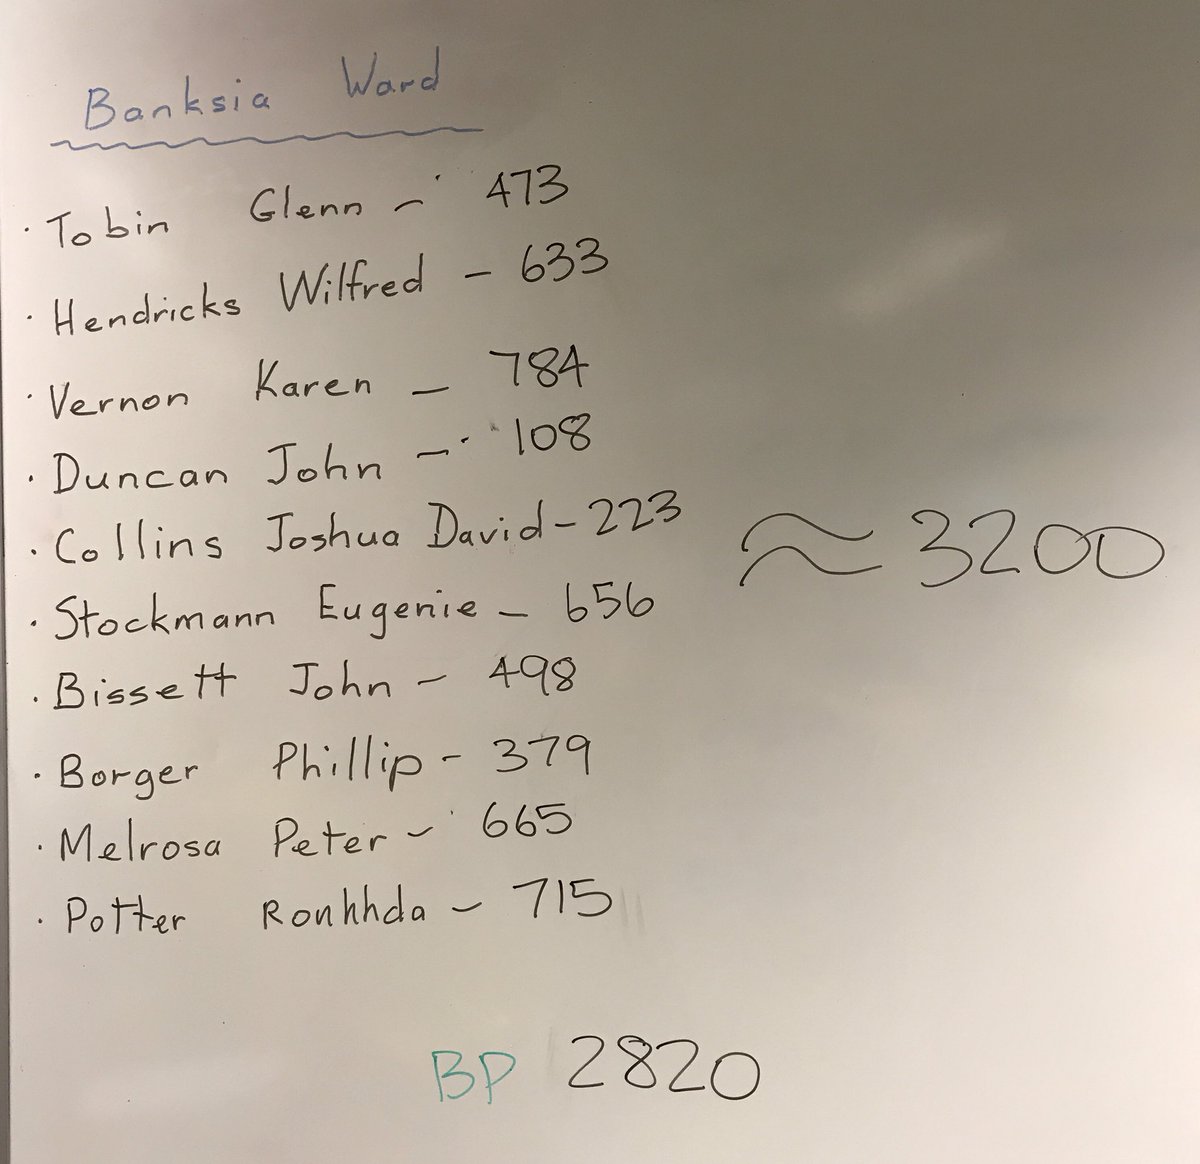 Banksia Ward
· Tobin Glenn - 473
· Hendricks Wilfred - 633
· Vernon Karen - 784
· Duncan John - 108
· Collins Joshua David - 223
· Stockmann Eugenie - 656
· Bissett John - 498
· Borger Phillip - 379
· Melrosa Peter - 665
· Potter Ronhhda - 715
≈ 3200
BP 2820